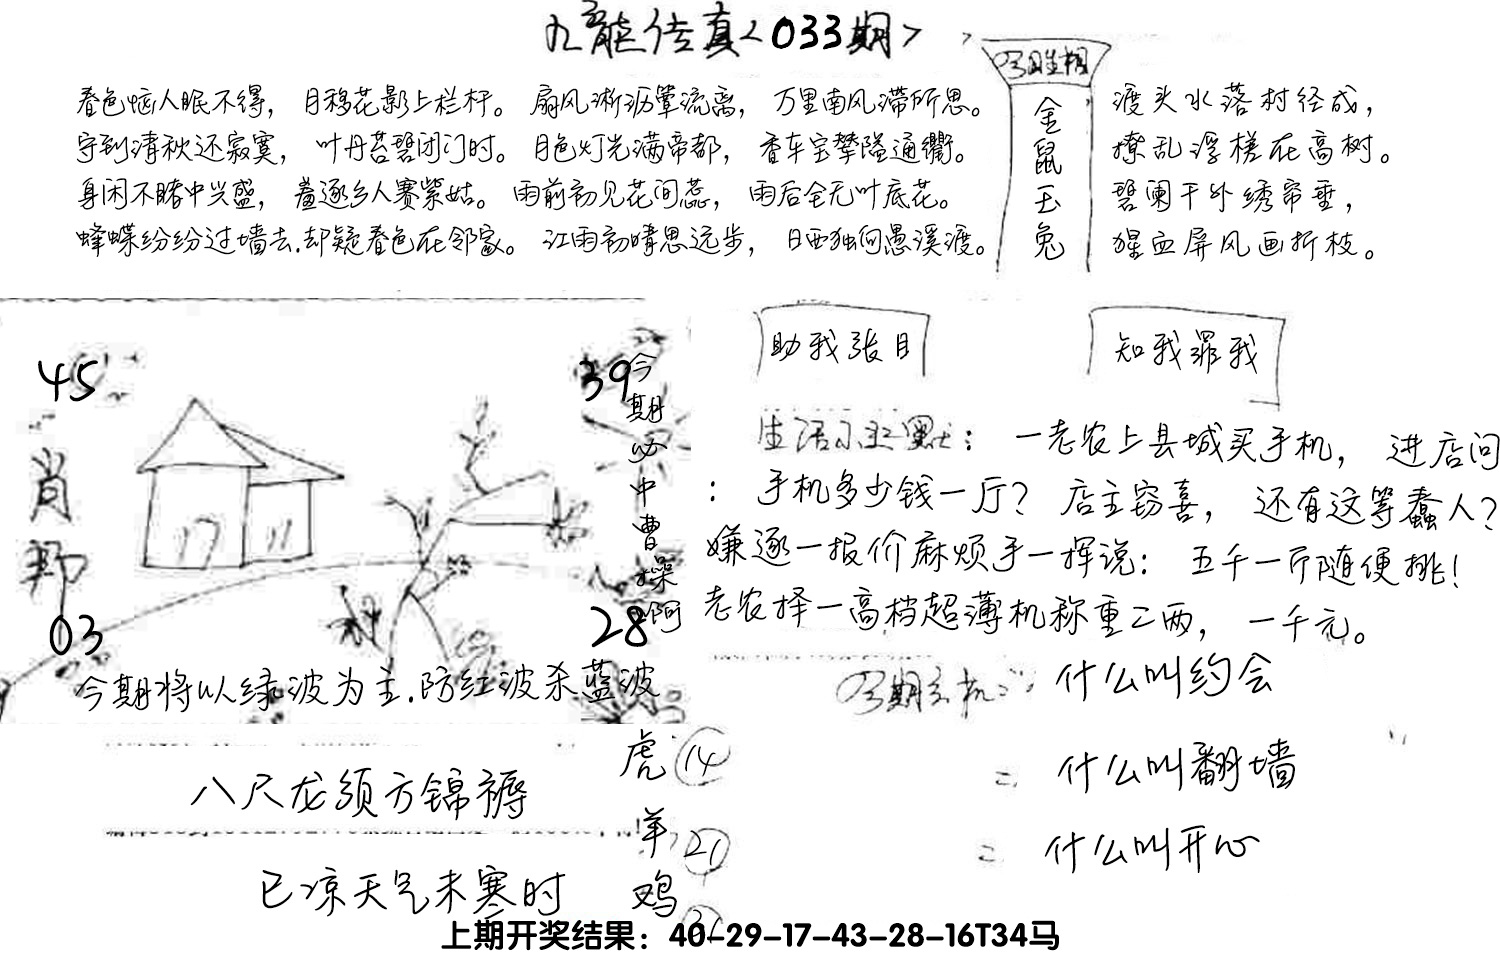 九龍传真<033期>
春色恼人眠不得，月移花影上栏杆。扇风淅沥簟流离，万里南风滞所思。
守到清秋还寂寞，叶丹苔碧闭门时。月色灯光满帝都，香车宝攀隘通衢。
身闲不睹中兴盛，羞逐乡人赛紫姑。雨前初见花间蕊，雨后全无叶底花。
蜂蝶纷纷过墙去.却疑春色在邻家。江雨初晴思远步，日西独向愚溪渡。
金鼠玉兔
渡头水落村径成，
撩乱浮槎在高树。
碧阑干外绣帘垂，
猩血屏风画折枝。
助我张目
知我罪我
45
39
肖
03
28
今期必中曹操啊
今期将以绿波为主.防红波杀蓝波
生活小幽默：一老农上县城买手机，进店问
：手机多少钱一斤？店主窃喜，还有这等蠢人？
嫌逐一报价麻烦手一挥说：五千一斤随便挑！
老农择一高档超薄机称重二两，一千元。
什么叫约会
二 什么叫翻墙
二 什么叫开心
虎 14
羊 21
鸡
八尺龙须方锦褥
已凉天气未寒时
上期开奖结果：40-29-17-43-28-16T34马